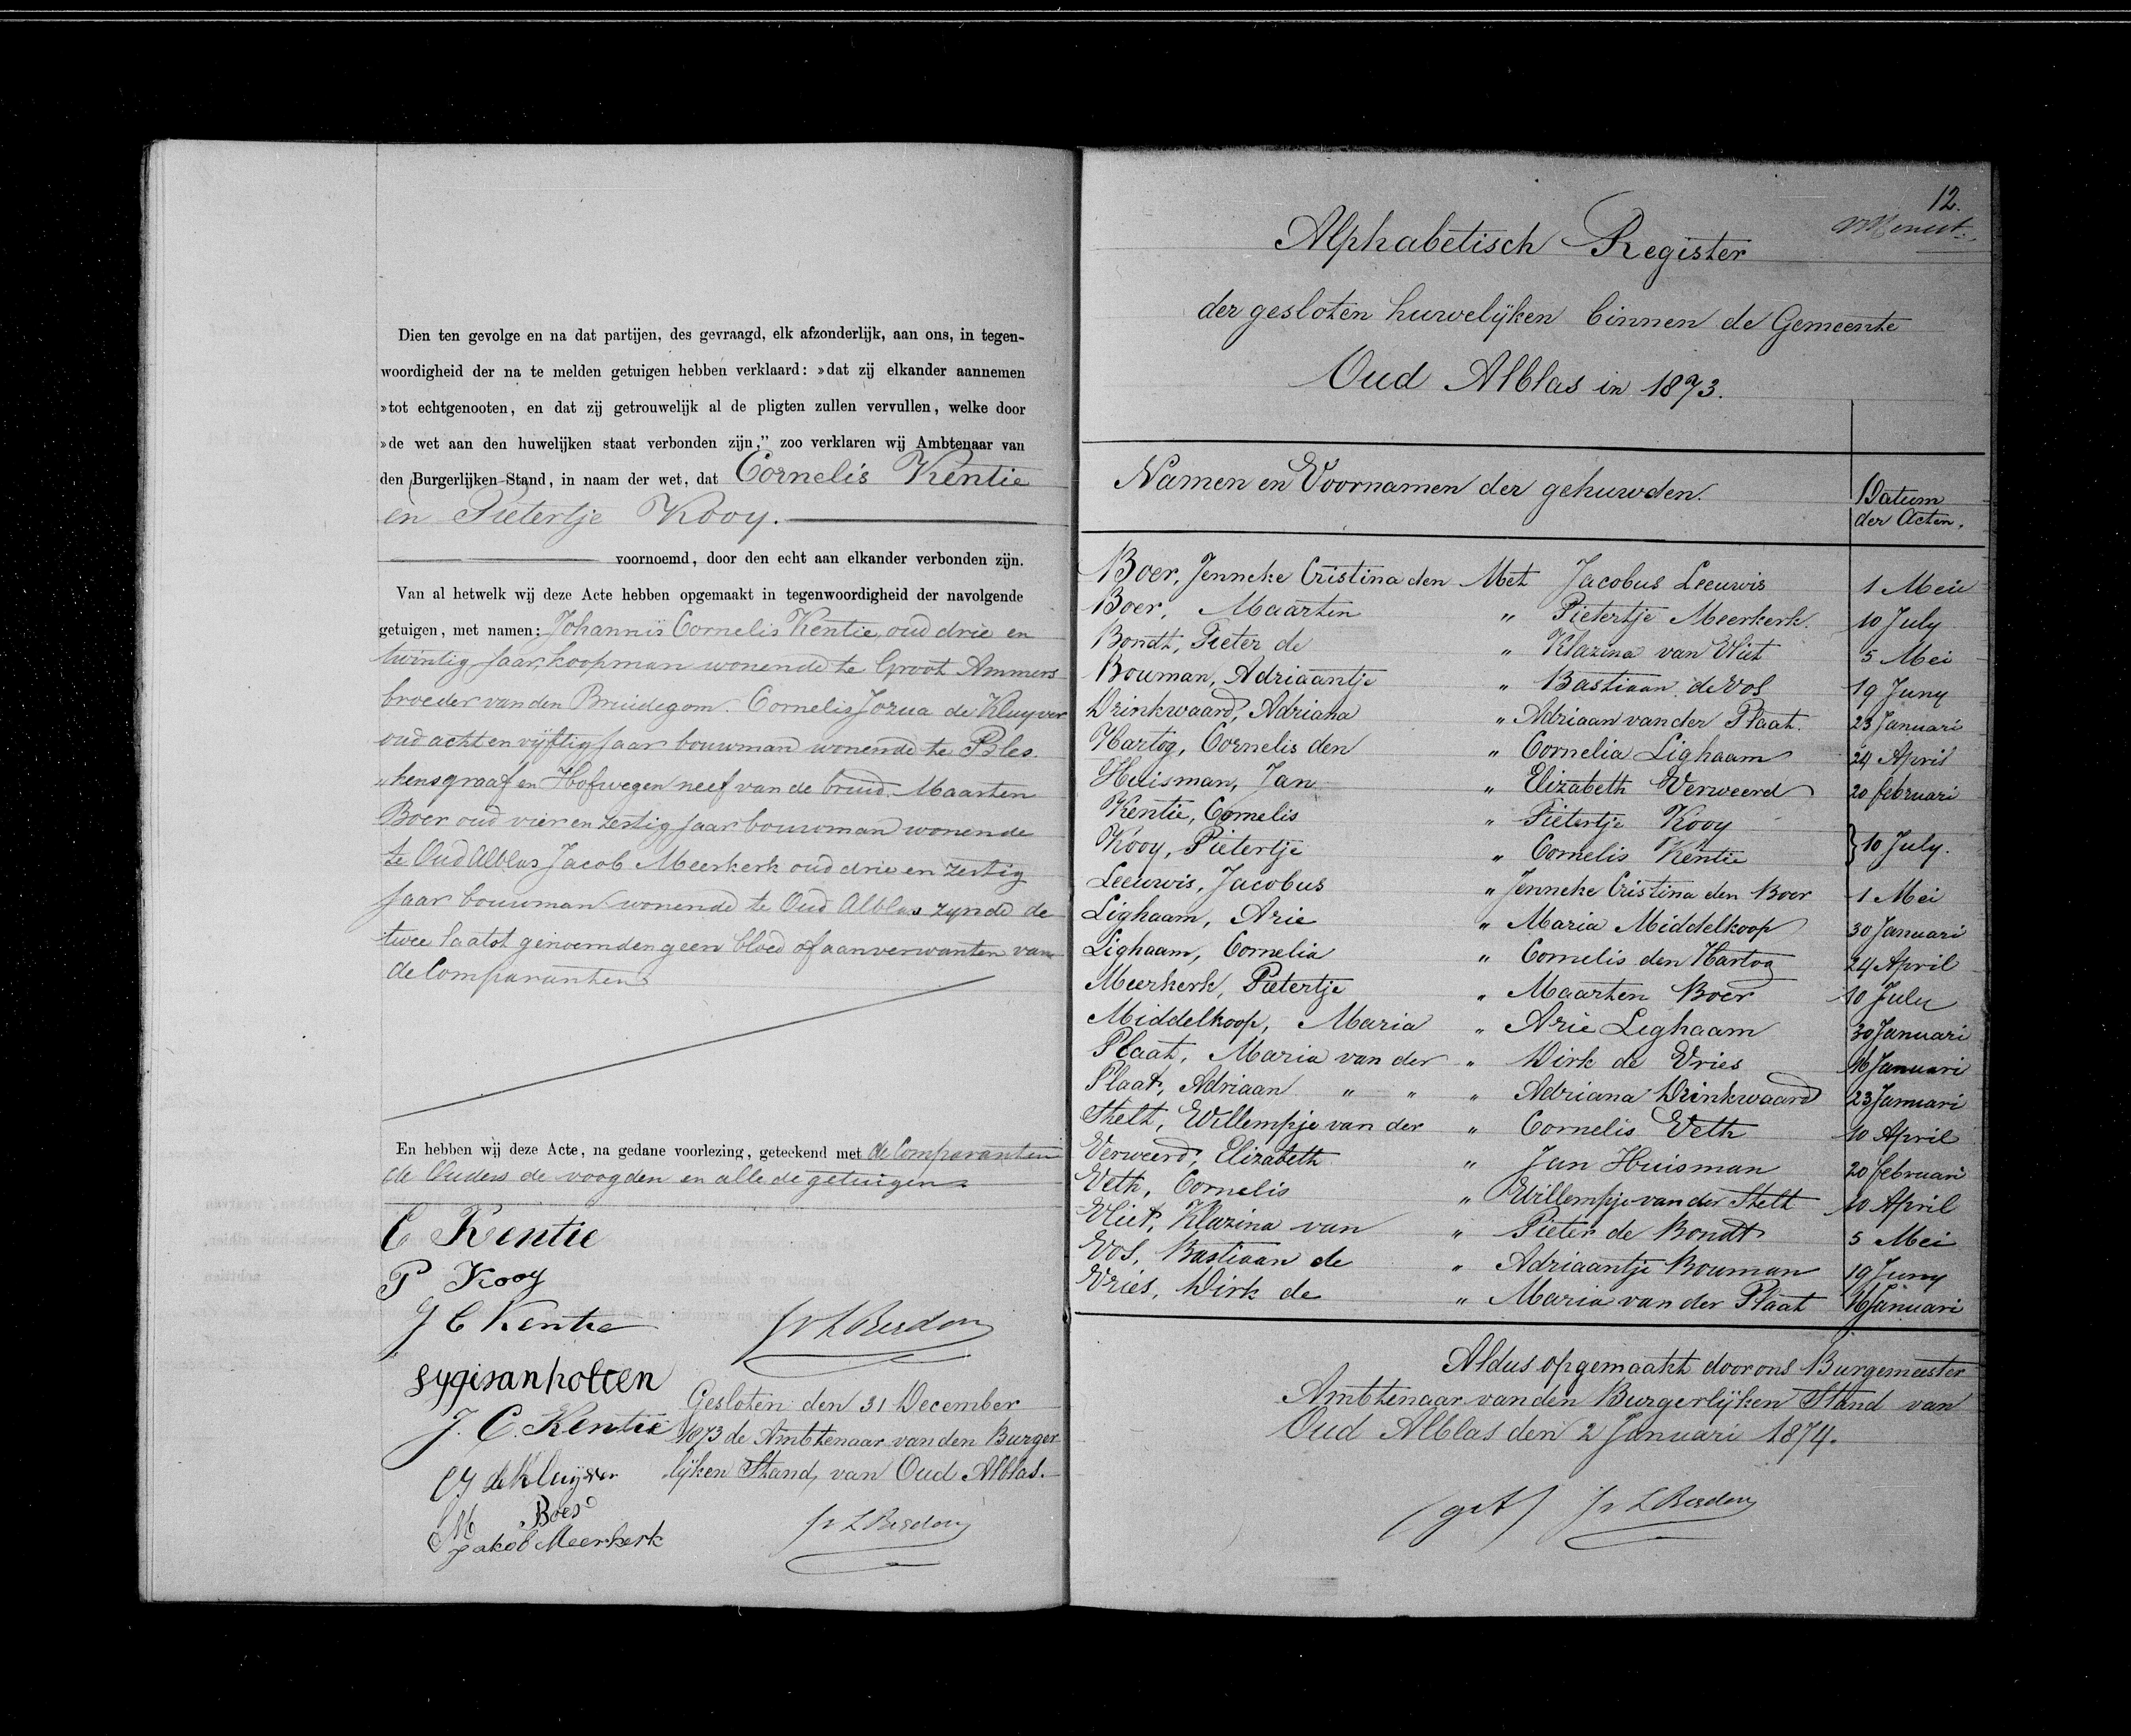 Dien ten gevolge en na dat partijen, des gevraagd, elk afzonderlijk, aan ons, in tegen-
woordigheid der na te melden getuigen hebben verklaard: »dat zij elkander aannemen
»tot echtgenooten, en dat zij getrouwelijk al de pligten zullen vervullen, welke door
»de wet aan den huwelijken staat verbonden zijn,” zoo verklaren wij Ambtenaar van
den Burgerlijken Stand, in naam der wet, dat Cornelis Kentie
en Pietertje Kooy.
voornoemd, door den echt aan elkander verbonden zijn.
Van al hetwelk wij deze Acte hebben opgemaakt in tegenwoordigheid der navolgende
getuigen, met namen: Johannis Cornelis Kentie, oud drie en
twintig Jaar koopman wonende te Groot Ammers
broeder van den Bruidegom. Cornelis Jozua de Kluyver
oud acht en vijftig Jaar bouwman wonende te Bles-
„kensgraaf en Hofwegen neef van de bruid. Maarten
Boer oud vier en zestig Jaar bouwman wonende
te Oud Alblas Jacob Meerkerk oud drie en zestig
Jaar bouwman wonende te Oud Alblas zynde de
twee laatst genoemden geen bloed of aanverwanten van
de Comparanten
En hebben wij deze Acte, na gedane voorlezing, geteekend met de Comparanten
de Ouders de voogden en alle de getuigen.
C Kentie
P Kooy
J C Kentie
J. C. Kentie
CJ de Kluyver
M Boer
Jakob Meerkerk
Gesloten den 31 December
1873 de Ambtenaar van den Burger
lijken Stand, van Oud Alblas.
12.
Alphabetisch Register
der gesloten huwelijken binnen de Gemeente
Oud Alblas in 1873.
Namen en Voornamen der gehuwden. Datum
der Acten.
Boer, Jenneke Cristina den Met Jacobus Leeuwis 1 Mei
Boer, Maarten „ Pietertje Meerkerk. 10 July
Bondt, Pieter de „ Klazina van Vliet 5 Mei
Bouman, Adriaantje „ Bastiaan de Vos 19 Juny
Drinkwaard, Adriana „ Adriaan van der Plaat. 23 Januari
Hartog, Cornelis den „ Cornelia Lighaam 24 April
Huisman, Jan „ Elizabeth Verweerd 20 februari
Kentie, Cornelis „ Pietertje Kooy
Kooy, Pietertje „ Cornelis Kentie } 10 July.
Leeuwis, Jacobus „ Jenneke Cristina den Boer 1 Mei
Lighaam, Arie „ Maria Middelkoop 30 Januari
Lighaam, Cornelia „ Cornelis den Hartog 24 April
Meerkerk, Pietertje „ Maarten Boer 10 July
Middelkoop, Maria „ Arie Lighaam 30 Januari
Plaat, Maria van der „ Dirk de Vries 16 Januari
Plaat, Adriaan „ „ „ Adriana Drinkwaard 23 Januari
Stelt, Willempje van der „ Cornelis Veth 10 April
Verweerd, Elizabeth „ Jan Huisman 20 februari
Veth, Cornelis „ Willempje van der Stelt 10 April
Vliet, Klazina van „ Pieter de Bondt 5 Mei
Vos, Bastiaan de „ Adriaantje Bouman 19 Juny
Vries, Dirk de „ Maria van der Plaat 16 Januari
Aldus opgemaakt door ons Burgemeester
Ambtenaar van den Burgerlijken Stand van
Oud Alblas den 2 Januari 1874.
(get)